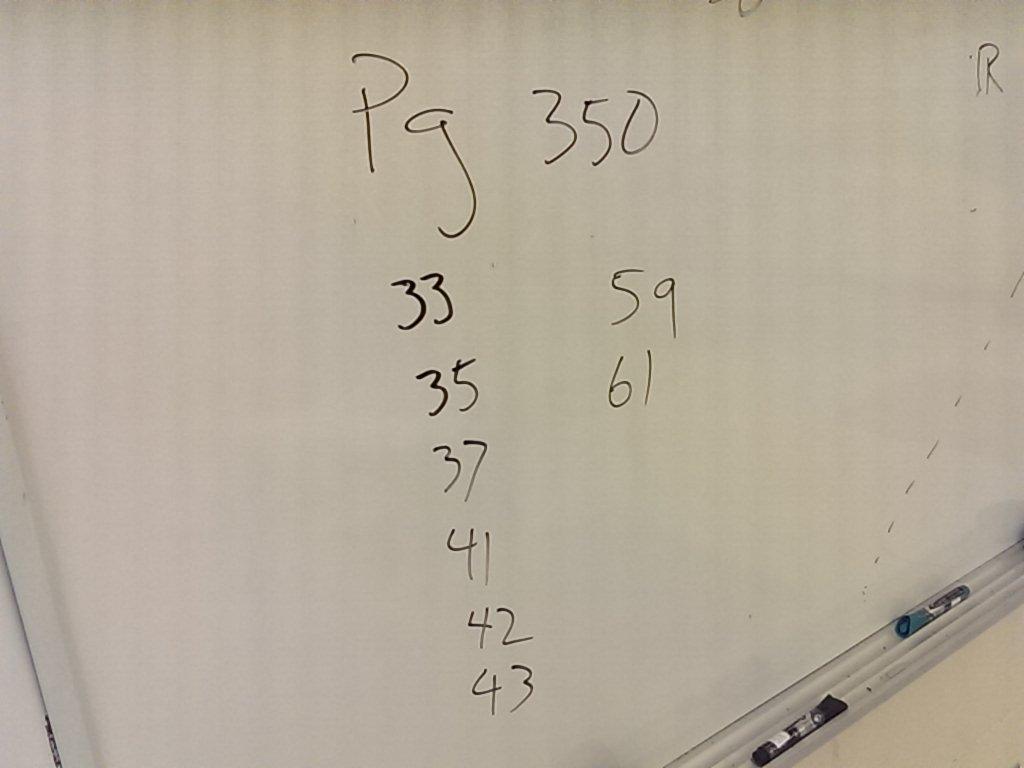 Pg 350
33 59
35 61
37
41
42
43
R